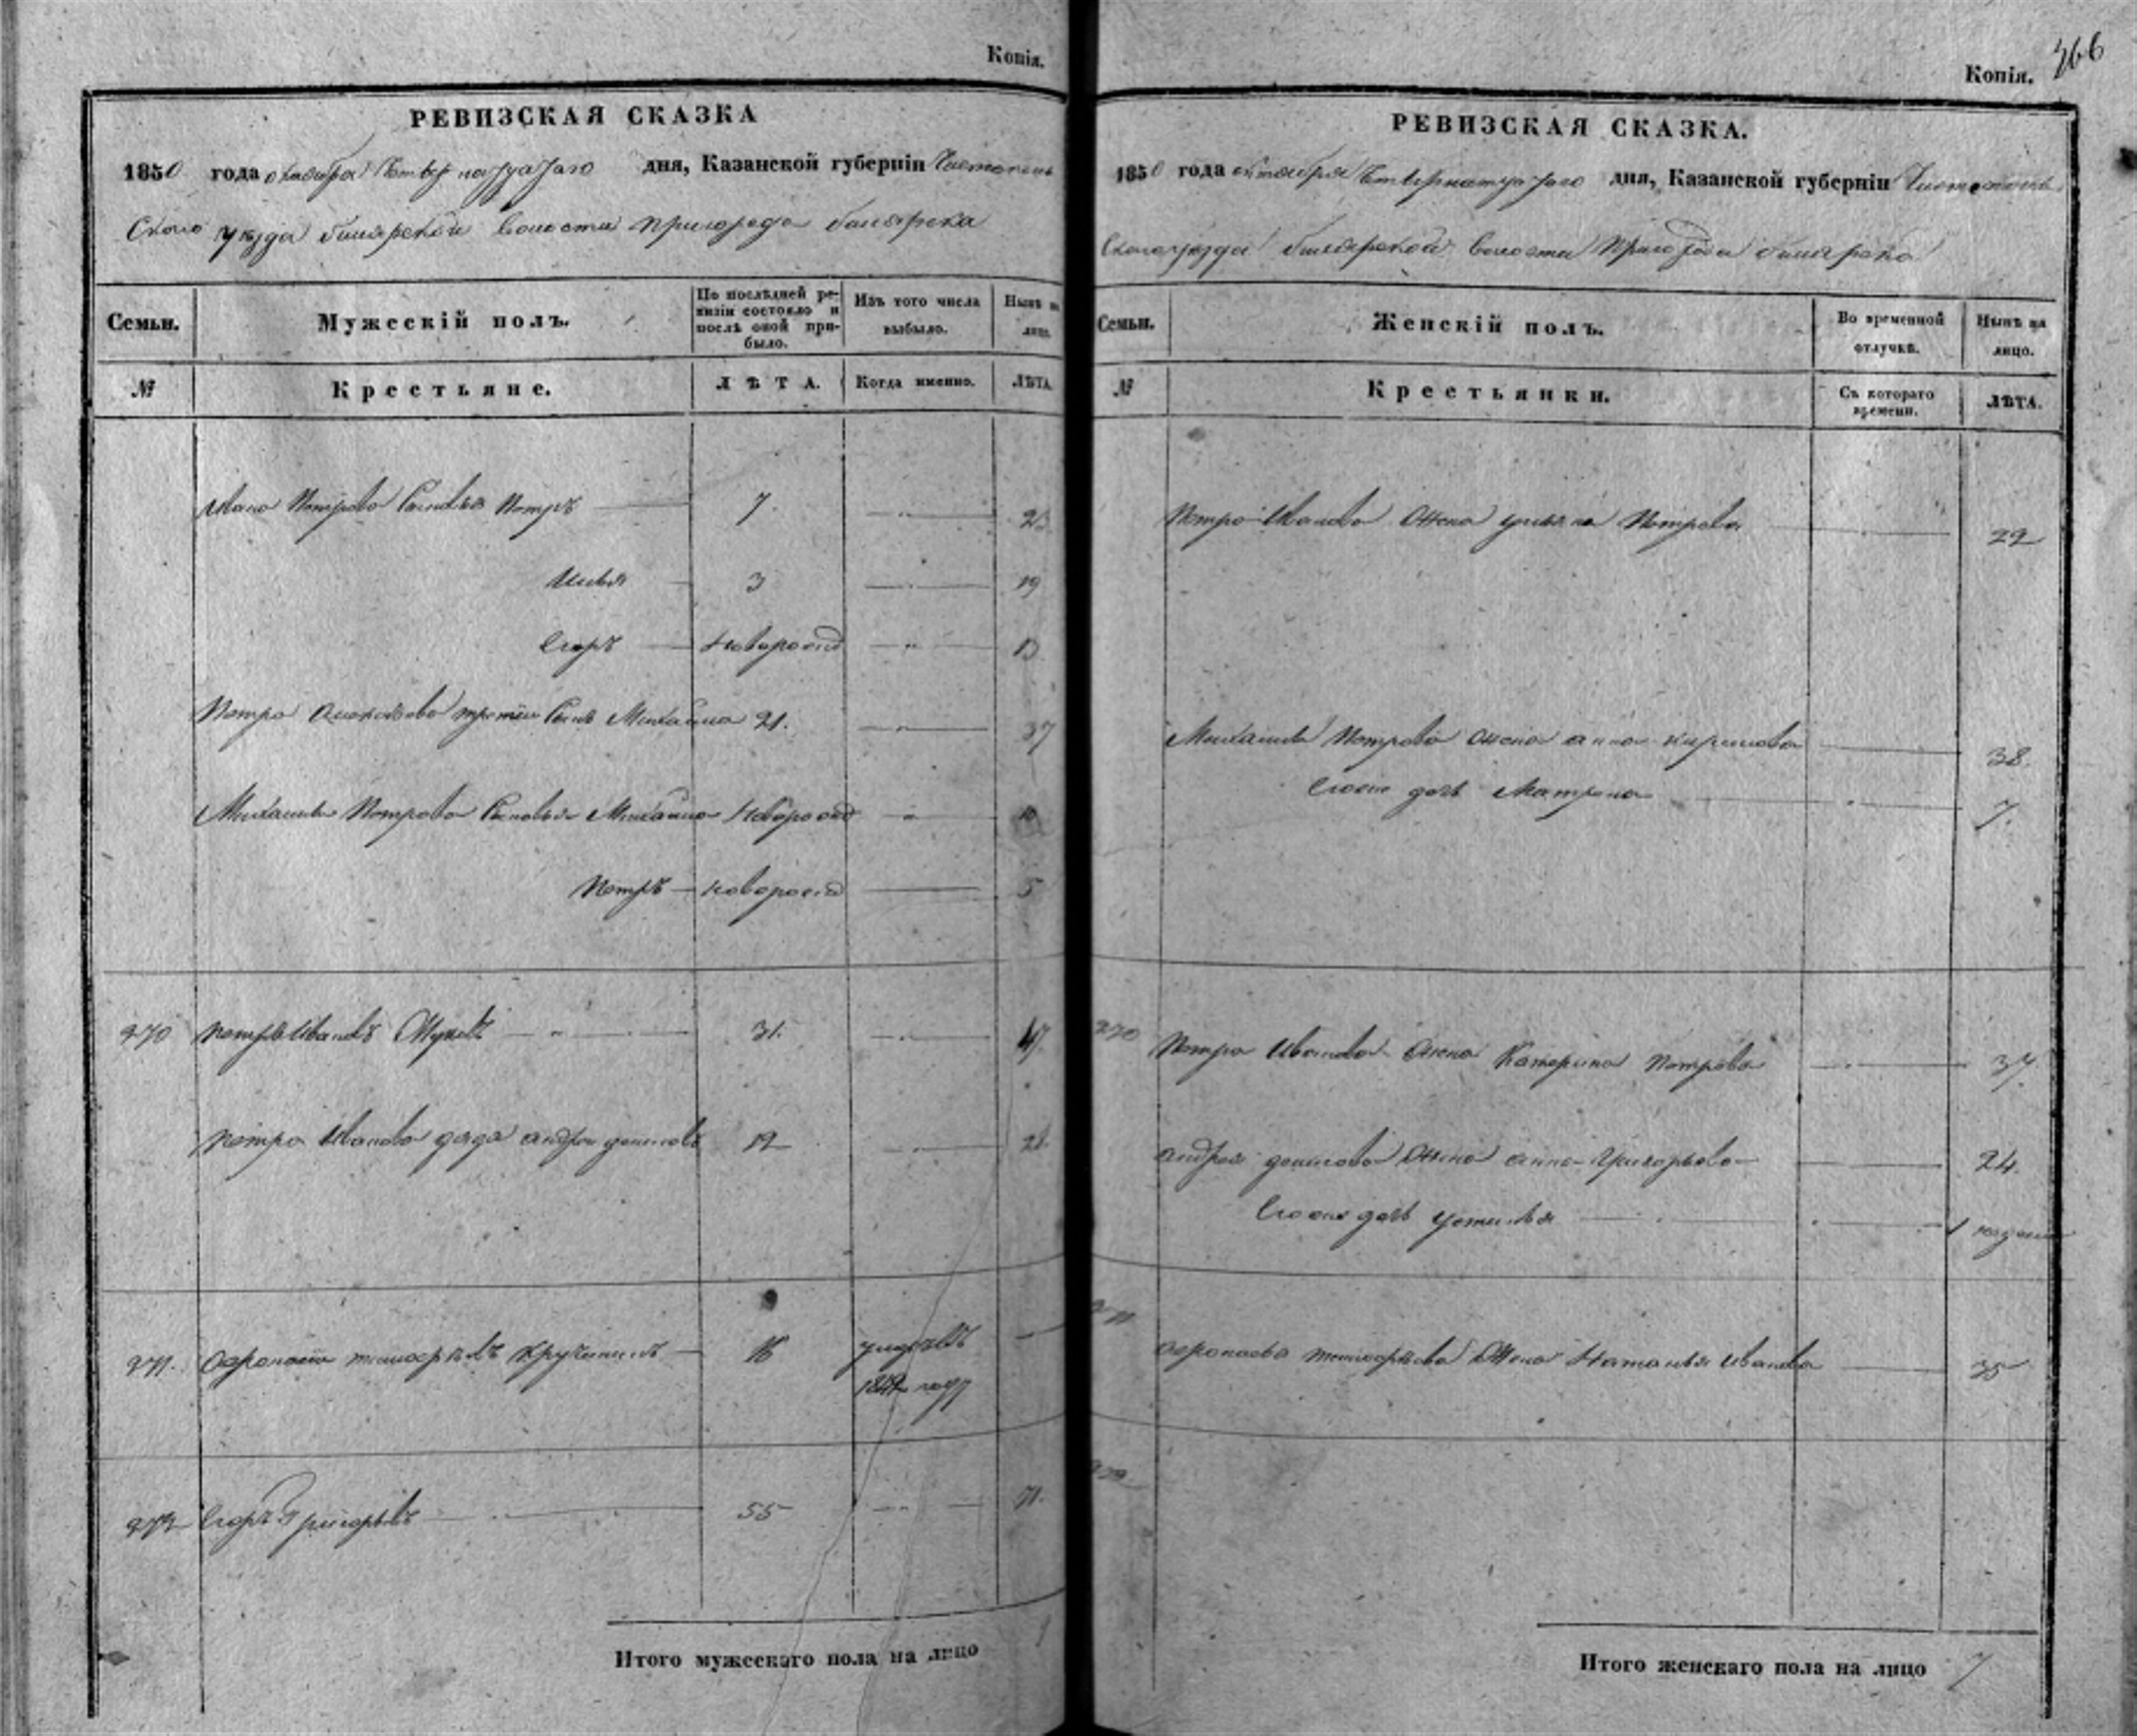 Копія.
РЕВИЗСКАЯ СКАЗКА
1850 года октября дня, Казанской губерніи Чистополь
ского уезда билярской волости пригорода билярска
Семьи. Мужескій полъ. По послѣдней ревизіи состояло и послѣ оной прибыло. Изъ того числа выбыло. Нынѣ на лицо.
№ Крестьяне. ЛѢТА. Когда именно. ЛѢТА.
Ивана Петрова сыновья Петръ 7 23
Илья 3 19
Егоръ новорожд 13
Петра третий сынъ Михайла 21. 37
Михайла Петрова сыновья Михайла новорожд 10
Петръ новорожд 5
270 Петръ Ивановъ 31. 47
Петра Иванова дядя андрей даниловъ 12 28
271. 16 1842 году
272 Егоръ Григорьевъ 55 71.
Итого мужескаго пола на лицо
366
Копія.
РЕВИЗСКАЯ СКАЗКА.
1850 года октября дня, Казанской губерніи Чистополь
ского уезда билярской волости пригорода билярска
Семьи. Женскій полъ. Во временной отлучкѣ. Нынѣ на лицо.
№ Крестьянки. Съ котораго времени. ЛѢТА.
Петра Иванова жена Петрова 22
Михайла Петрова жена анна кирилова 38.
Егоже дочь Матрена 7.
270 Петра Иванова жена Катерина Петрова 37
андрея данилова жена анна Григорьева 24.
Егоже дочь Устинья
271 жена Наталья Иванова 35
272
Итого женскаго пола на лицо 7